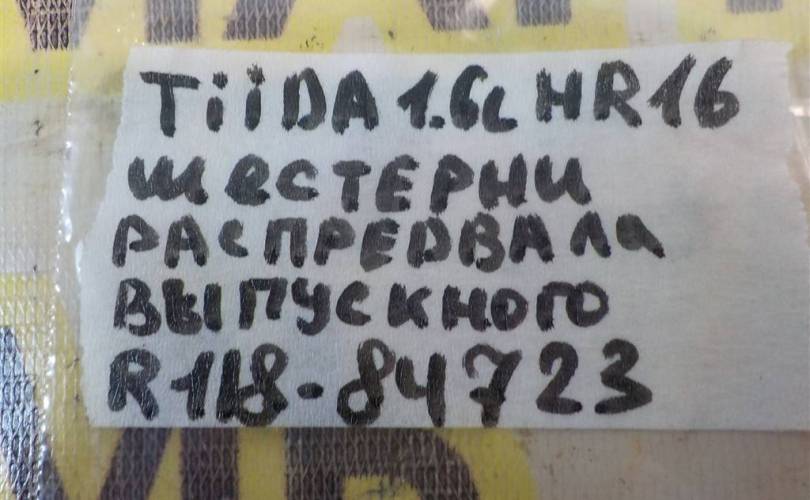 TiiDA 1.6L HR16
шестерни
распредвала
выпускного
R118-84723